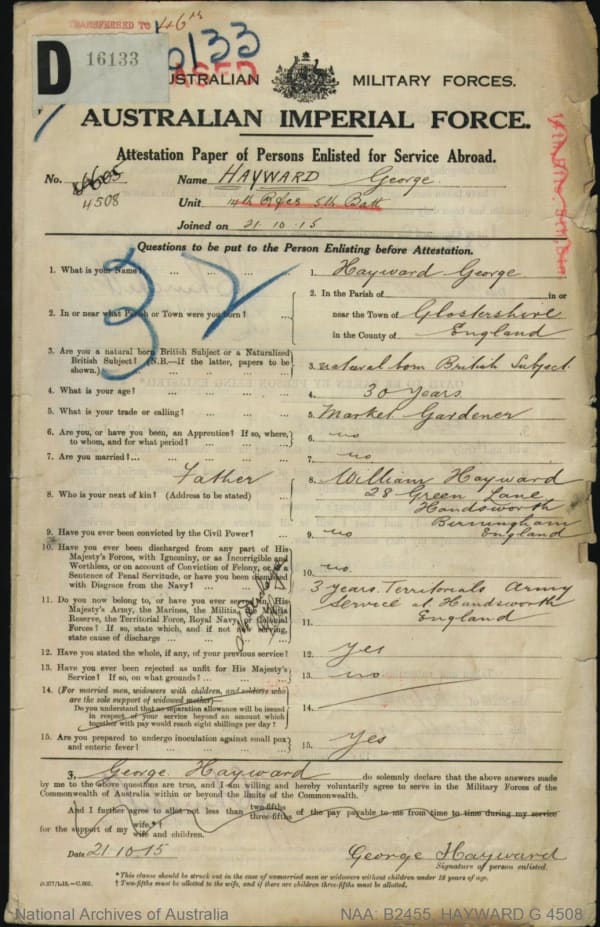 TRANSFERRED TO 46th
D 16133
AUSTRALIAN MILITARY FORCES.
AUSTRALIAN IMPERIAL FORCE.
Attestation Paper of Persons Enlisted for Service Abroad.
No. 4508 Name HAYWARD George.
Unit 14th Rfcs 5th Batt
Joined on 21.10.15
Questions to be put to the Person Enlisting before Attestation.
32
1. What is your Name? ... ... ... ... 1. Hayward George
2. In or near what Parish or Town were you born? ... 2. In the Parish of in or
near the Town of Glostershire
in the County of England
3. Are you a natural born British Subject or a Naturalized
British Subject? (N.B.—If the latter, papers to be
shown.) ... 3. natural born British Subject
4. What is your age? ... ... ... ... 4. 30 years
5. What is your trade or calling? ... ... ... 5. Market Gardener
6. Are you, or have you been, an Apprentice? If so, where,
to whom, and for what period? ... ... 6. no
7. Are you married? ... ... ... ... 7. no
Father
8. Who is your next of kin? (Address to be stated) ... 8. William Hayward
28 Green Lane
Handsworth
Birmingham
England
9. Have you ever been convicted by the Civil Power? ... 9. no
10. Have you ever been discharged from any part of His
Majesty's Forces, with Ignominy, or as Incorrigible and
Worthless, or on account of Conviction of Felony, or of a
Sentence of Penal Servitude, or have you been dismissed
with Disgrace from the Navy? ... 10. no
11. Do you now belong to, or have you ever served in, His
Majesty's Army, the Marines, the Militia, the Militia
Reserve, the Territorial Force, Royal Navy, or Colonial
Forces? If so, state which, and if not now serving,
state cause of discharge ... 11. 3 years Territorials Army
Service at Handsworth
England
12. Have you stated the whole, if any, of your previous service? 12. Yes
13. Have you ever been rejected as unfit for His Majesty's
Service? If so, on what grounds? ... 13. no
14. (For married men, widowers with children, and soldiers who
are the sole support of widowed mother)—
Do you understand that no separation allowance will be issued
in respect of your service beyond an amount which
together with pay would reach eight shillings per day? 14.
15. Are you prepared to undergo inoculation against small pox
and enteric fever? ... ... ... 15. Yes
I, George Hayward do solemnly declare that the above answers made
by me to the above questions are true, and I am willing and hereby voluntarily agree to serve in the Military Forces of the
Commonwealth of Australia within or beyond the limits of the Commonwealth.
And I further agree to allot not less than two-fifths three-fifths of the pay payable to me from time to time during my service
for the support of my wife.*† wife and children.
Date 21.10.15 George Hayward
Signature of person enlisted.
* This clause should be struck out in the case of unmarried men or widowers without children under 18 years of age.
† Two-fifths must be allotted to the wife, and if there are children three-fifths must be allotted.
National Archives of Australia NAA: B2455, HAYWARD G 4508